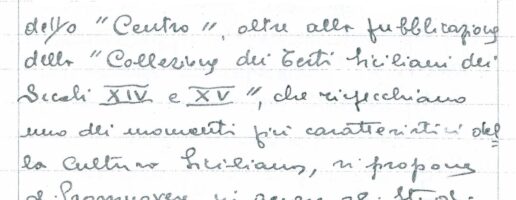 dello "Centro", oltre alla pubblicazione
della "Collezione dei Testi Siciliani dei
Secoli XIV e XV", che rispecchiano
uno dei momenti più caratteristici del
la Cultura Siciliana, si propone